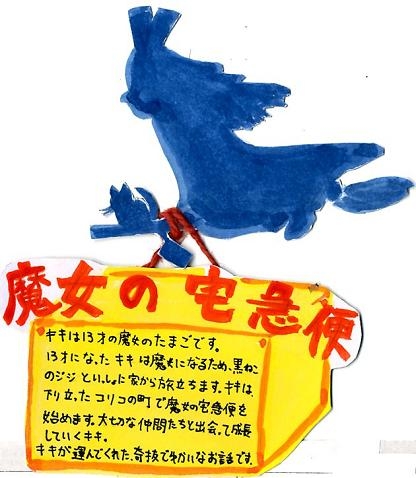 魔女の宅急便
キキは13才の魔女のたまごです。
13才になったキキは魔女になるため、黒ねこ
のジジといっしょに家から旅立ちます。キキは、
下り立ったコリコの町で魔女の宅急便を
始めます。大切な仲間たちと出会って成長
していくキキ。
キキが運んでくれた、奇抜でゆかいなお話です。